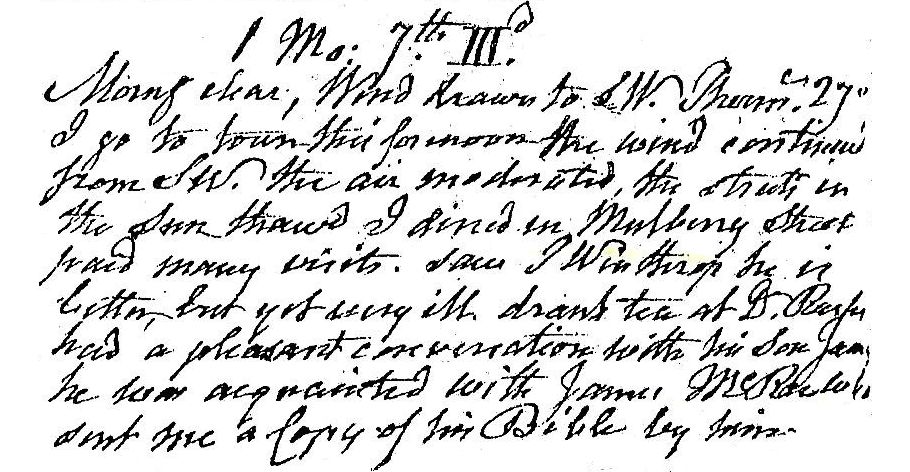 1 Mo: 7th III.d
Morng clear, Wind drawn to S.W. Therm. 27°
I go to town this forenoon the wind continued
from S.W. the air moderated, the streets in
the Sun thaw'd I dined in Mulberry Street
paid many visits. saw J Winthrop he is
better, but yet very ill. drank tea at D. Rush
had a pleasant conversation with his Son Jam
he was acquainted with James
sent me a Copy of his Bible by him.